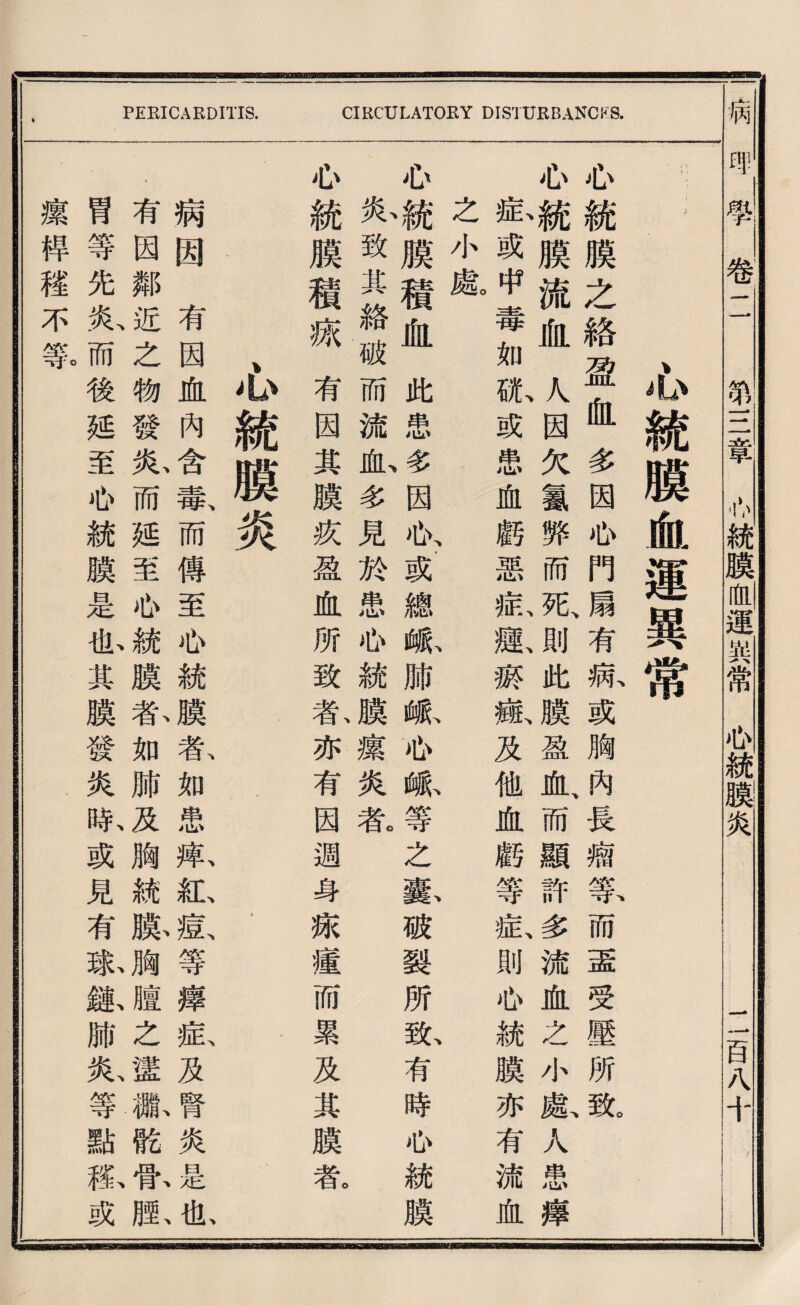 病理學 卷二 第三章 心統膜血運異常 心統膜炎 二百八十
CIRCULATORY DISTURBANCES.
PERICARDITIS.
心統膜血運異常
心統膜之絡盈血 多因心門扇有病、或胸內長瘤等、而盂受壓所致。
心統膜流血 人因欠氱弊而死、則此膜盈血、而顯許多流血之小處、人患癉
症、或中毒如硄、或患血虧惡症、癦、瘀癍、及他血虧等症、則心統膜亦有流血
之小處。
心統膜積血 此患多因心、或總衇、肺衇、心衇、等之囊、破裂所致、有時心統膜
炎、致其絡破而流血、多見於患心統膜瘰炎者。
心統膜積𤶽 有因其膜疚盈血所致者、亦有因週身𤶽瘇而累及其膜者。
心統膜炎
病因 有因血內含毒、而傳至心統膜者、如患痺、紅、痘、等癉症、及腎炎是也、
有因鄰近之物發炎、而延至心統膜者、如肺及胸統膜、胸膻之盓、骩骨、脛、
胃等先炎、而後延至心統膜是也、其膜發炎時、或見有球、鏈、肺炎、等點䅜、或
瘰桿䅜不等。